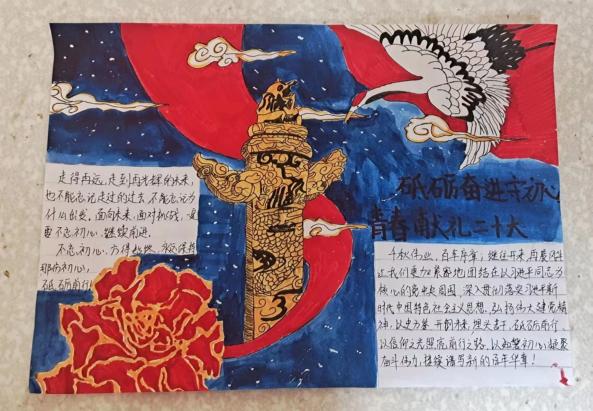 砥砺奋进守初心
青春献礼二十大
走得再远,走到再光辉的未来,
也不能忘记走过的过去,不能忘记为
什么出发。面向未来,面对挑战,
要不忘初心,继续前进。
不忘初心,方得始终
那份初心,
砥砺前行
千秋伟业,百年序章;继往开来,再
让我们更加紧密地团结在以习近平同志为
核心的党中央周围,深入贯彻落实习近平新
时代中国特色社会主义思想,弘扬伟大建党精
神,以史为鉴,开创未来,埋头苦干,砥砺前行,
以信仰之光照亮前行之路,以如磐初心凝聚
奋斗伟力,继续谱写新的百年华章!